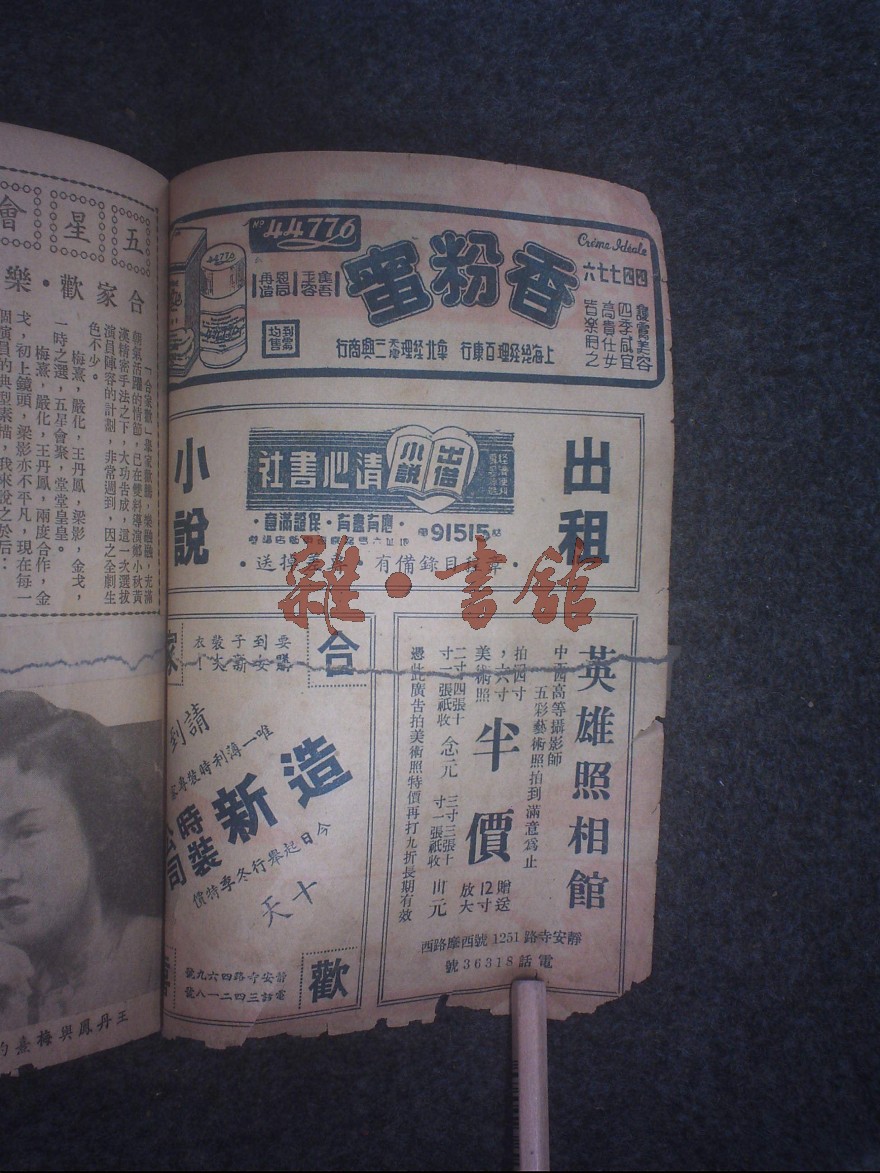 五星會
合家歡·樂
「合家歡」舉家歡騰,樂融融,充滿
朝氣活躍的情節,已在雙料導演鄭小秋黃
漢精密手法之下,大功告成,這一次選拔
演員陣容的計劃,非常週到,因之全劇生
色不少。
梅熹,嚴化,王丹鳳,梁影,金戈,
一時之選,五星會聚,堂堂皇皇。
梅熹,嚴化,王丹鳳,兩度合作,金
戈,初上鏡頭,梁影亦不平凡,現在每一
個演員的典型素描,我來說之於后:
王丹鳳與梅熹
Nº 44776
Crème Idéale
四四七七六
香粉蜜
護膚美容
四季咸宜
高貴仕女
皆樂用之
到處均售
上海總經理百康行
華北經理天津三興商行
出租
小說
出借小說
清心書社
應有盡有·保證滿意
電話91515
備有目錄
雜·書館
英雄照相館
中西高等攝影師
五彩藝術照拍到滿意為止
拍四寸,六寸美術照
半價
贈送12寸放大
二寸四張十寸一張祇收念元
三寸三張十寸一張祇收卅元
憑此廣告拍美術照特價再打九折長期有效
靜安寺路1251號西摩路西
電話36318號
合家歡
要到
請到
唯一薄利時裝專家
造新時裝公司
今日起舉行冬季特價
十天
靜安寺路四六九號
電話三四二一八號